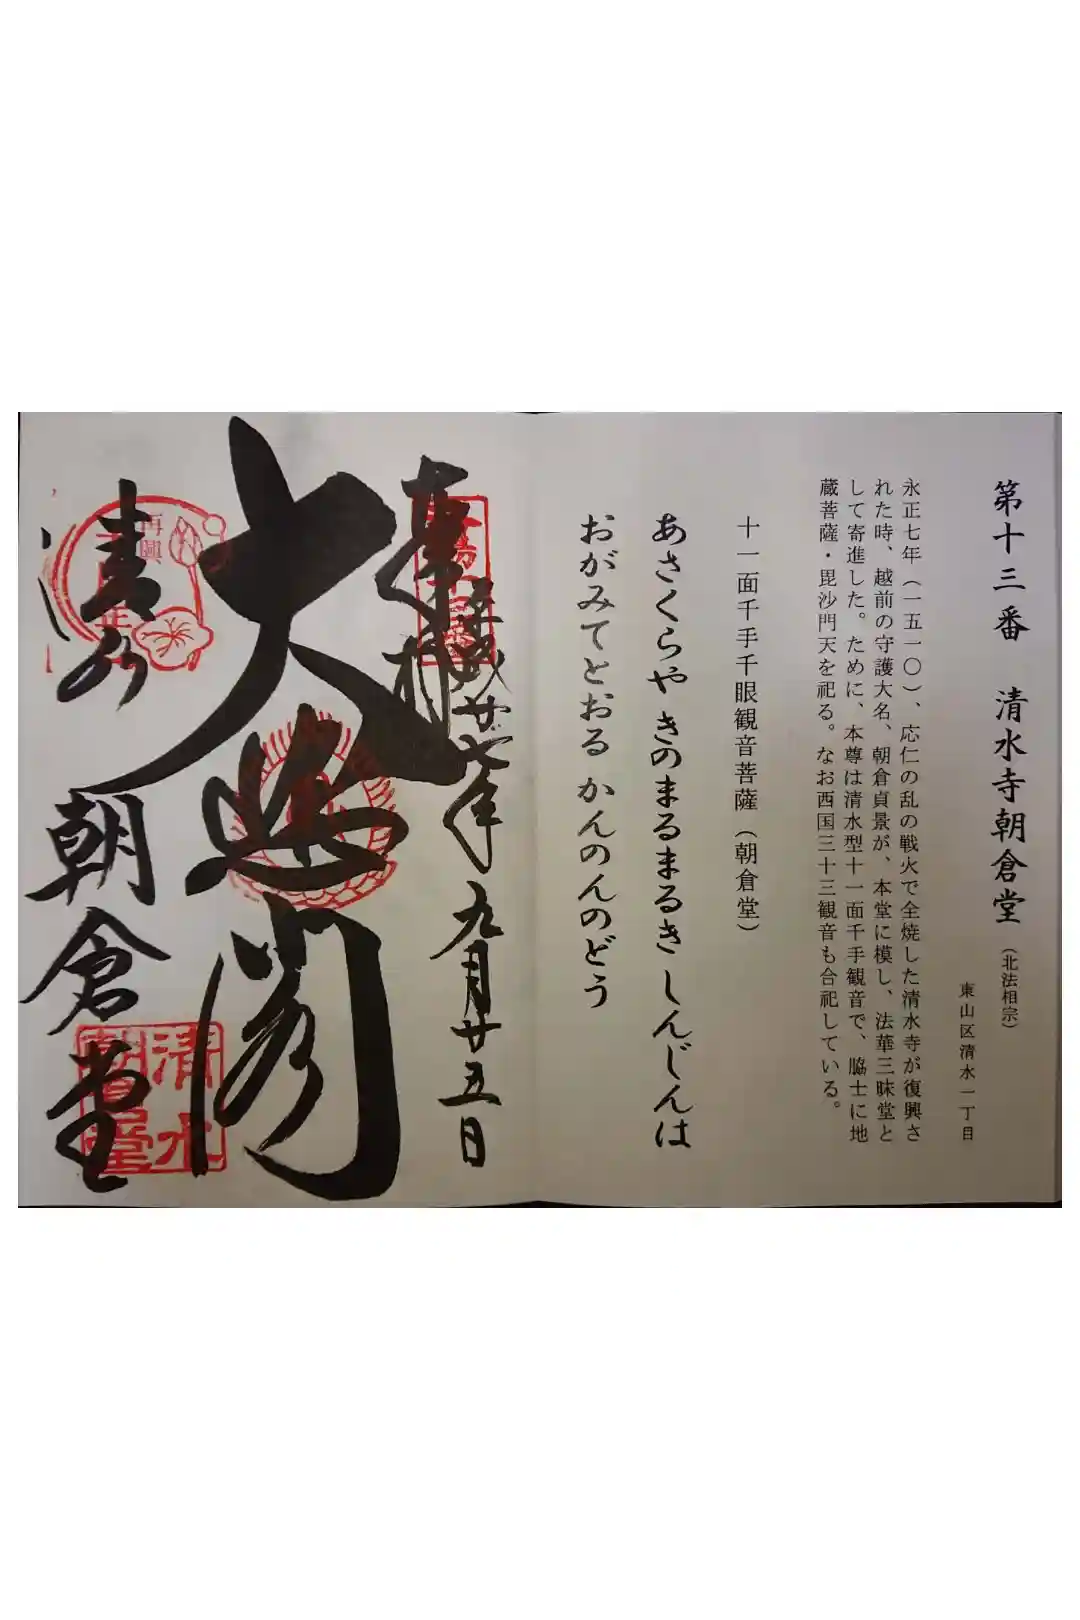 第十三番 清水寺朝倉堂(北法相宗)
東山区清水一丁目
永正七年(一五一〇)、応仁の乱の戦火で全焼した清水寺が復興さ
れた時、越前の守護大名、朝倉貞景が、本堂に模し、法華三昧堂と
して寄進した。ために、本尊は清水型十一面千手観音で、脇士に地
蔵菩薩・毘沙門天を祀る。なお西国三十三観音も合祀している。
十一面千手千眼観音菩薩(朝倉堂)
あさくらや きのまるまるき しんじんは
おがみてとおる かんのんのどう
平成廿七年 九月廿五日
奉拝
大悲閣
清水
朝倉堂
再興
清水
朝倉堂